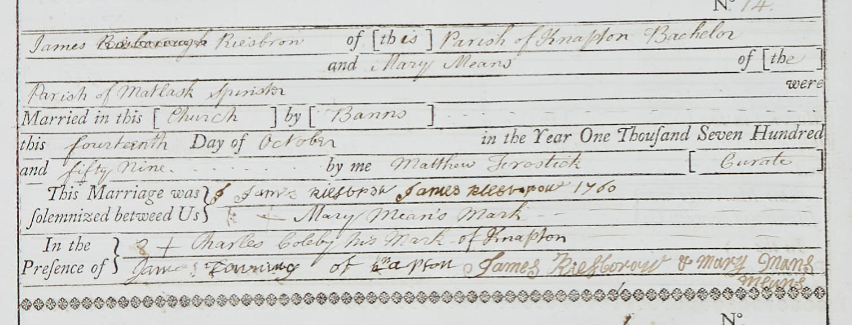 No. 14.
James Risborough Riesbron of [this] Parish of Knapton Bachelor
and Mary Means of [the ]
Parish of Matlask Spinster were
Married in this [Church ] by [Banns ]
this fourteenth Day of October in the Year One Thousand Seven Hundred
and fifty Nine. by me Matthew [Curate ]
This Marriage was James James 1760
solemnized betweed Us Mary Mean's Mark
In the 8 + Charles Cobby his Mark of Knapton
Presence of James of Knapton James Riesborow & Mary Mans
Means
No.